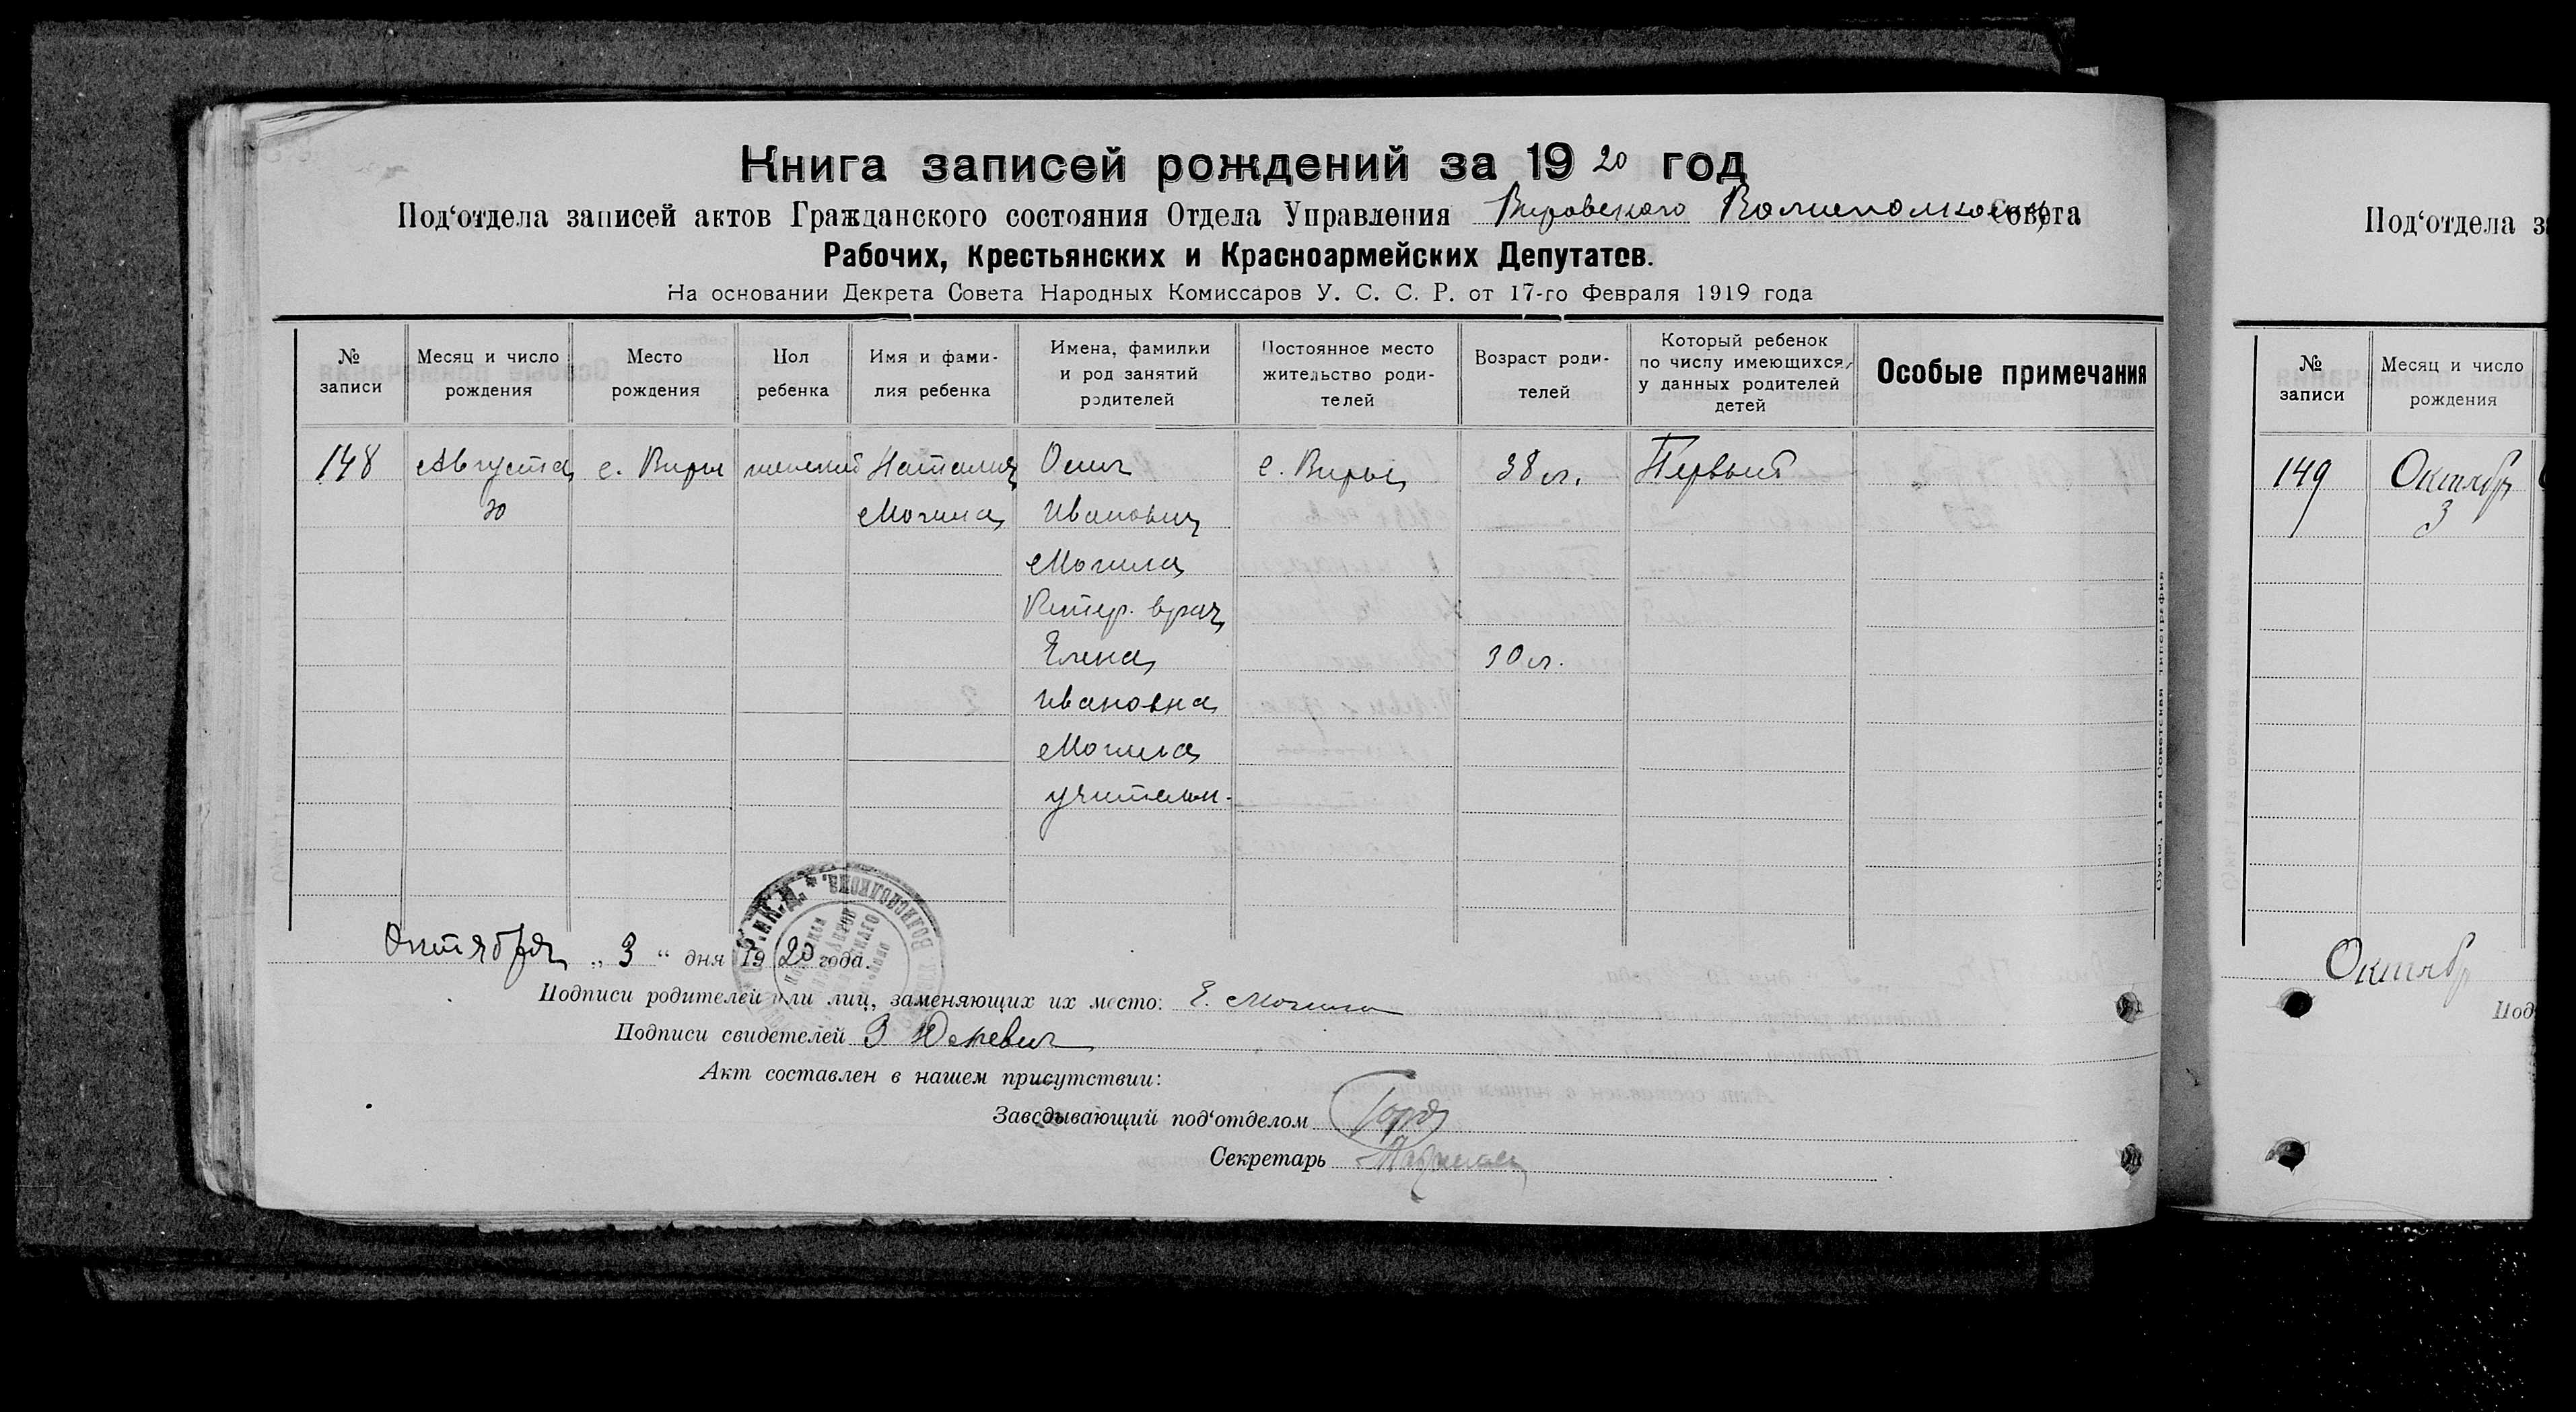 Книга записей рождений за 1920 год
Под‘отдела записей актов Гражданского состояния Отдела Управления Вировского Волисполкома Совета
Рабочих, Крестьянских и Красноармейских Депутатов.
На основании Декрета Совета Народных Комиссаров У. С. С. Р. от 17-го Февраля 1919 года
№ записи
Месяц и число рождения
Место рождения
Пол ребенка
Имя и фами-
лия ребенка
Имена, фамилии
и род занятий
родителей
Постоянное место
жительство роди-
телей
Возраст роди-
телей
Который ребенок
по числу имеющихся
у данных родителей
детей
Особые примечания
148
Августа
20
с. Виры
женский
Наталия
Могила
Осип
Иванович
Могила
Ветер. врач
Елена
Ивановна
Могила
учительн.
с. Виры
38 л.
30 л.
Первый
Октября „ 3 “ дня 1920 года.
Подписи родителей или лиц, заменяющих их место: Е. Могила
Подписи свидетелей З
Акт составлен в нашем присутствии:
Заведывающий под‘отделом
Секретарь
Сумы, 1-ая Советская типография
Под‘отдела з
№ записи
Месяц и число рождения
149
Октября
3
Октябр
Под